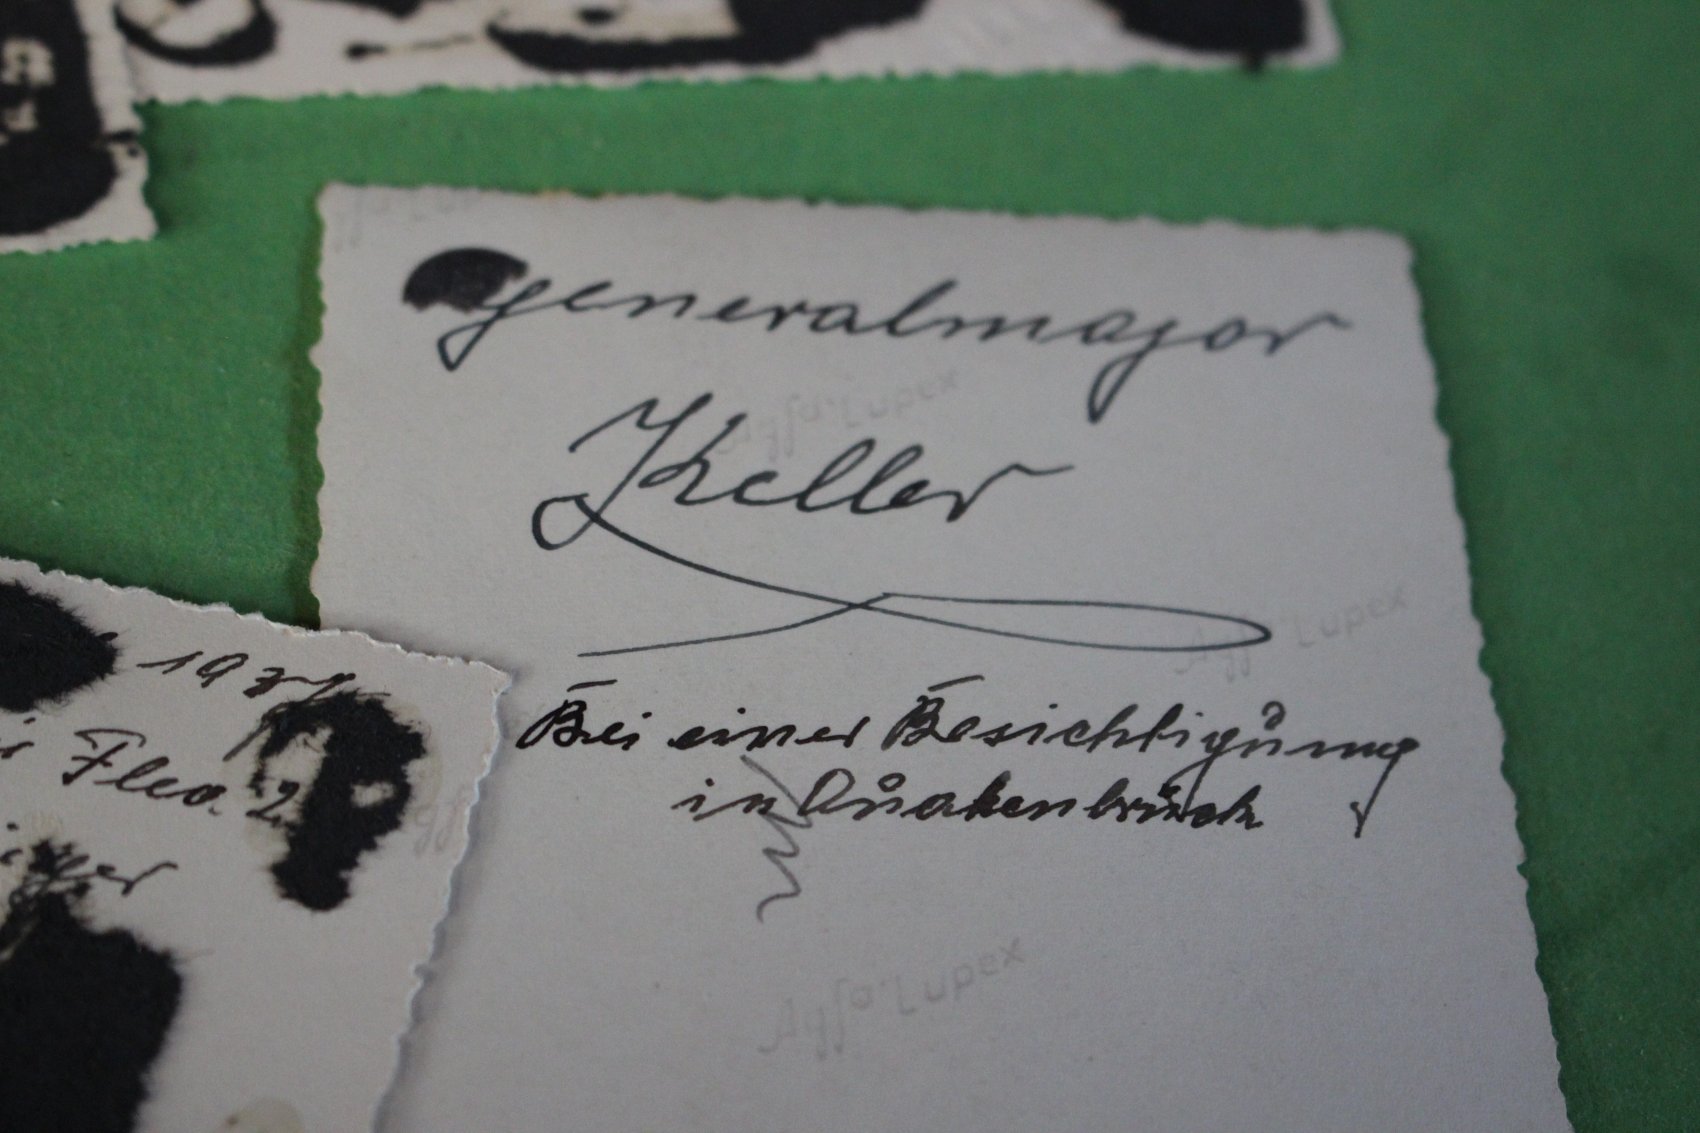 Generalmajor
Keller
Bei einer Besichtigung
in Quakenbrück
Agfa-Lupex
Agfa-Lupex
Agfa-Lupex
Flea. 2.